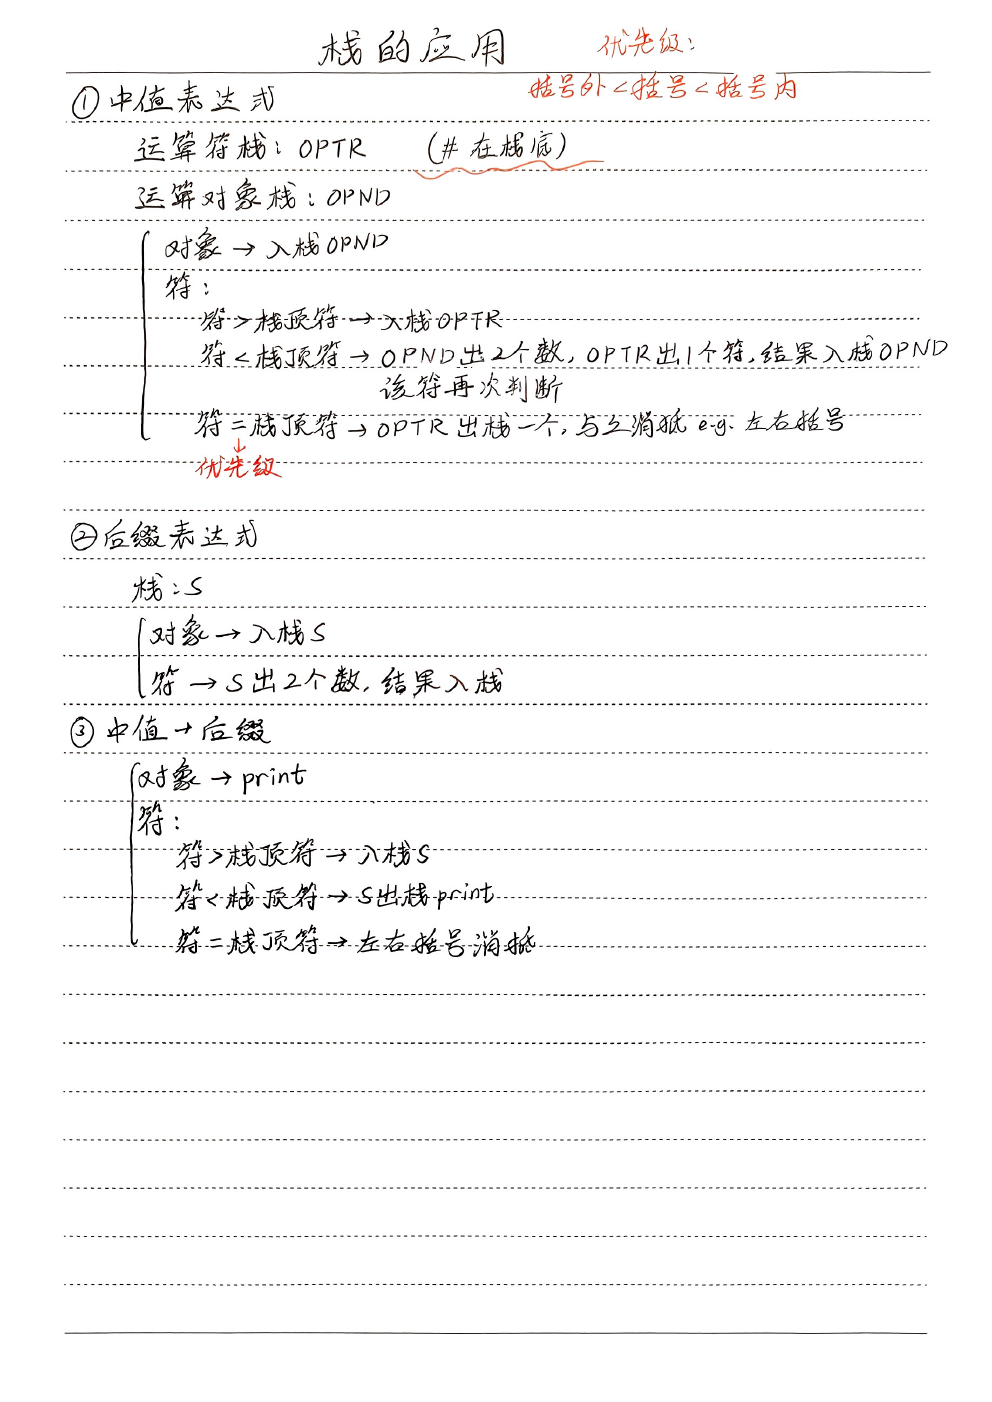 栈的应用
优先级:
括号外<括号<括号内
①中值表达式
运算符栈: OPTR (# 在栈底)
运算对象栈: OPND
对象→入栈OPND
符:
符>栈顶符→入栈OPTR
符<栈顶符→OPND出2个数, OPTR出1个符, 结果入栈OPND
该符再次判断
符=栈顶符→OPTR出栈一个, 与之消抵 e.g. 左右括号
↓
优先级
②后缀表达式
栈:S
对象→入栈S
符→S出2个数, 结果入栈
③中值→后缀
对象→print
符:
符>栈顶符→入栈S
符<栈顶符→S出栈print
符=栈顶符→左右括号消抵